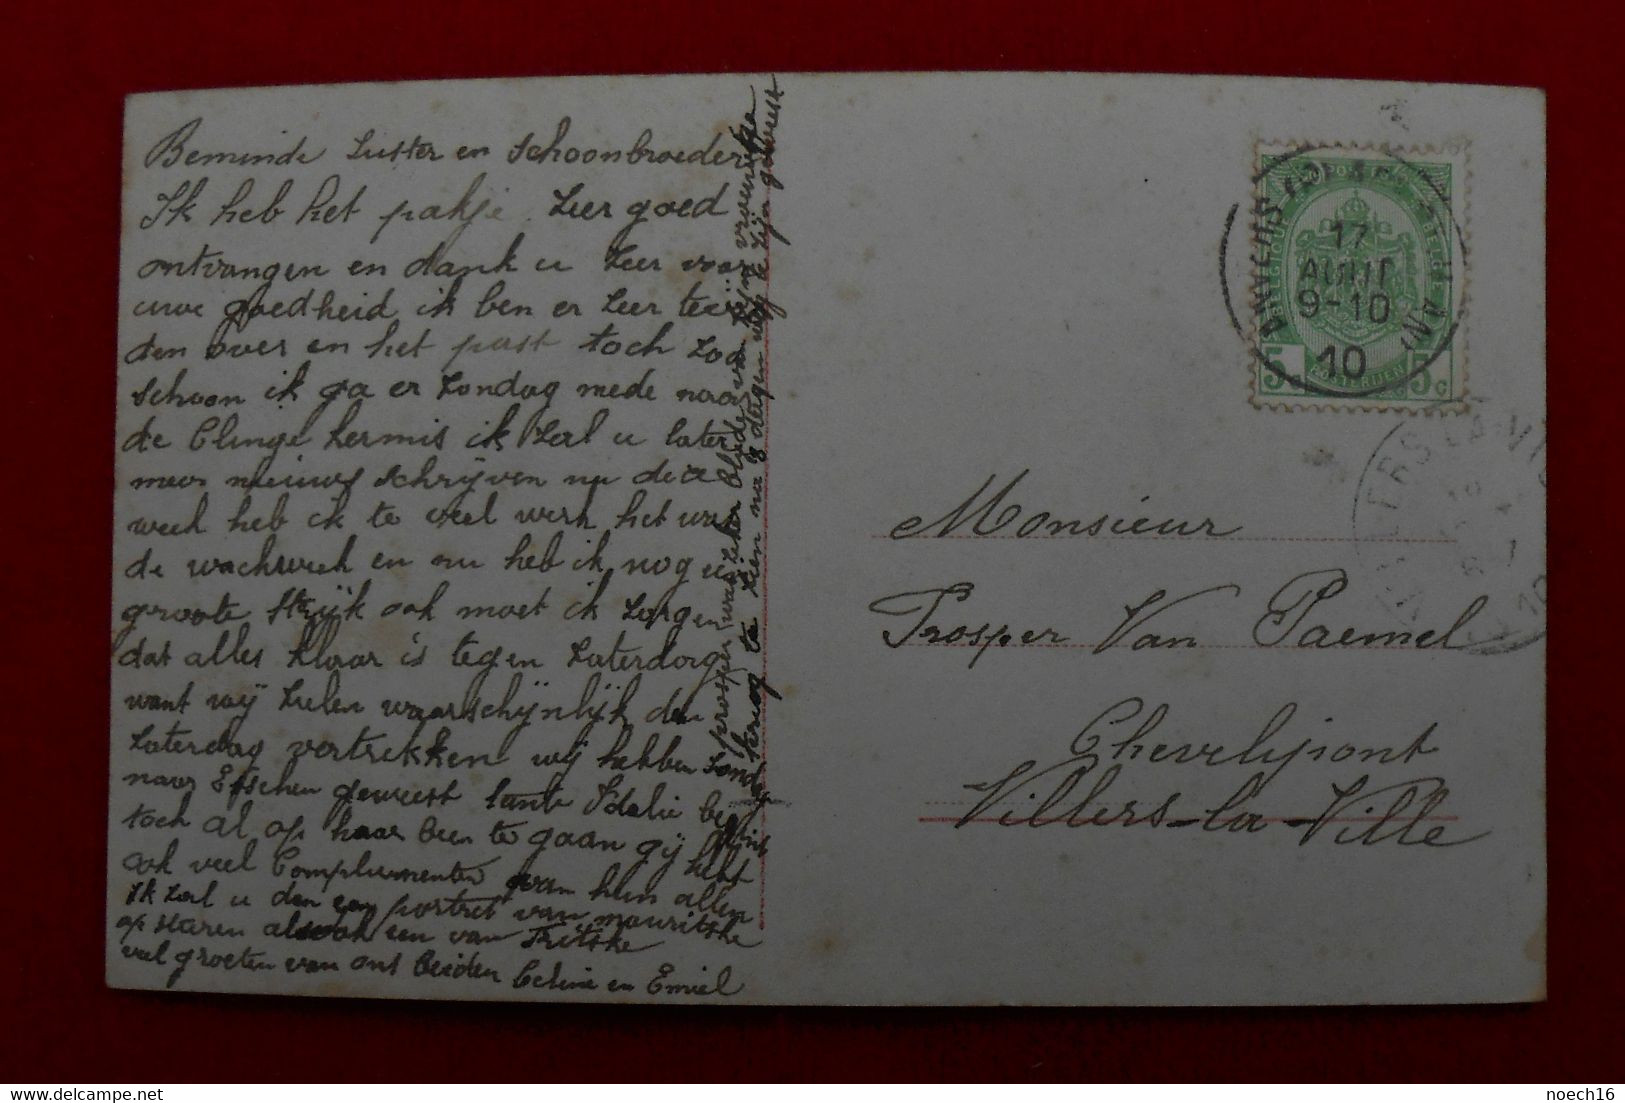 Beminde Zuster en Schoonbroeder
Ik heb het pakje Zeer goed
ontvangen en dank u Zeer voor
uwe goedheid ik ben er Zeer tevr
den over en het past toch Zoo
schoon ik ga er Zondag mede naar
de Clinge Kermis ik Zal u later
meer nieuws schrijven nu deze
week heb ik te veel werk het was
de wachweek en nu heb ik nog u
groote Strijk ook moet ik Zorgen
dat alles klaar is tegen Zaterdag
want wij Zulen waarschijnlijk den
Zaterdag vertrekken wij hebben Zond
naar Esschen geweest tante Idalie be
toch al op haar been te gaan gij hebt
ook veel Complimenten van hun allen
Ik Zal u den een portret van mauritske
op sturen alsook een van Fritske
veel groeten van ons beiden Celine en Emiel
prosper was Zeker blijde van Zijn vrouwtje
terug te Zien na 8 dagen weg te Zijn geweest
ANVERS
17
AOUT
9-10
10
BELGIQUE
BELGIE
5
POSTERIJEN
5 c
VILLERS-LA-VILLE
10
Monsieur
Prosper Van Paemel
Chevelipont
Villers-la-Ville
noech16